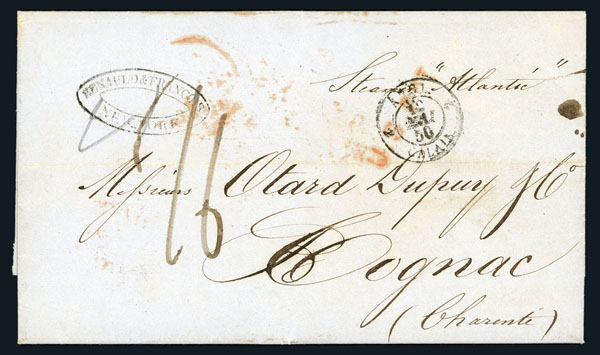 RENAULD & FRANÇOIS
NEW-YORK
Steamer "Atlantic"
ANGL.
12
MAI
50
CALAIS
16
Messieurs Otard Dupuy & Co
Cognac
(Charente)